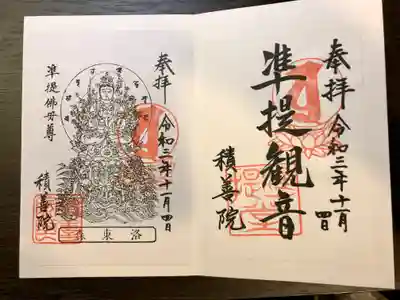 奉拝
准提観音
令和三年十一月
四日
積善院
奉拝
令和三年十一月四日
準提佛母尊
積善院
洛東